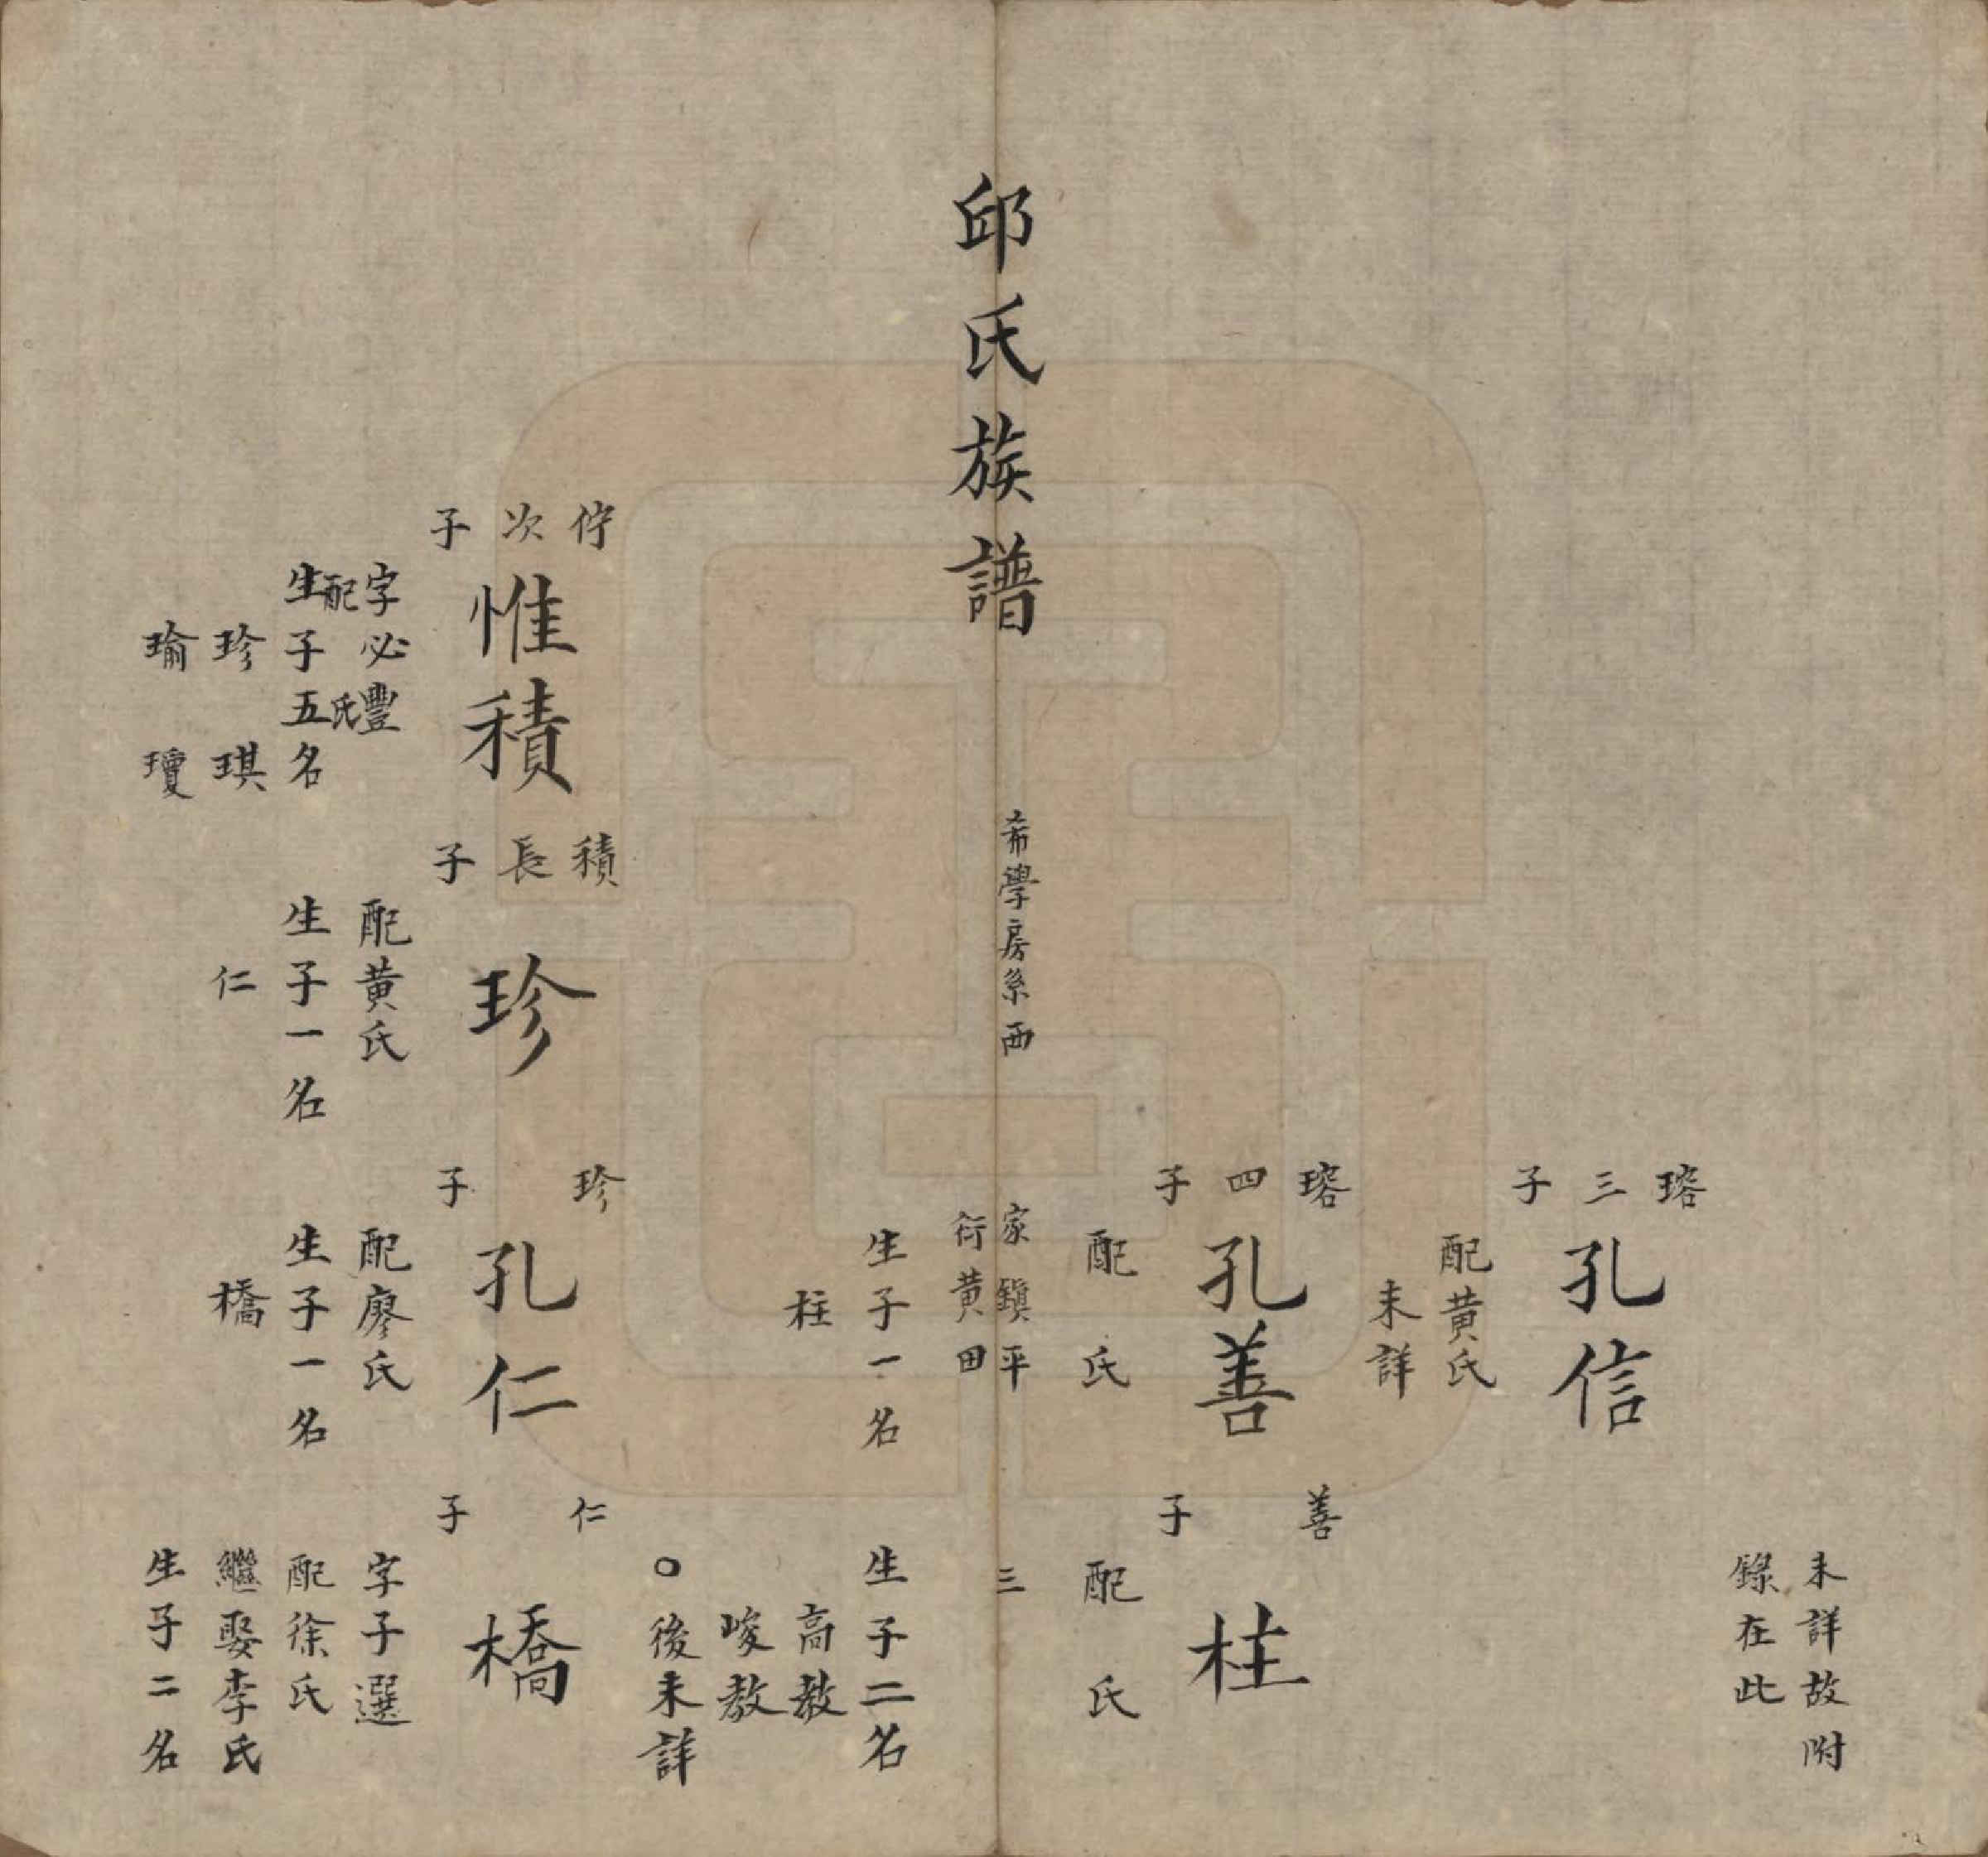 未詳故附
錄在此
瑢三子
孔信
配黄氏
未詳
瑢四子
孔善
配　氏
生子一名
柱
善子
柱
配　氏
生子二名
高敎
峻敎
○後未詳
邱氏族譜
希學房系西
家鎭平
衍黄田
三
佇次子
惟積
字必豐
配　氏
生子五名
珍　琪
瑜　瓊
積長子
珍
配黄氏
生子一名
仁
珍子
孔仁
配廖氏
生子一名
橋
仁子
橋
字子選
配徐氏
繼娶李氏
生子二名